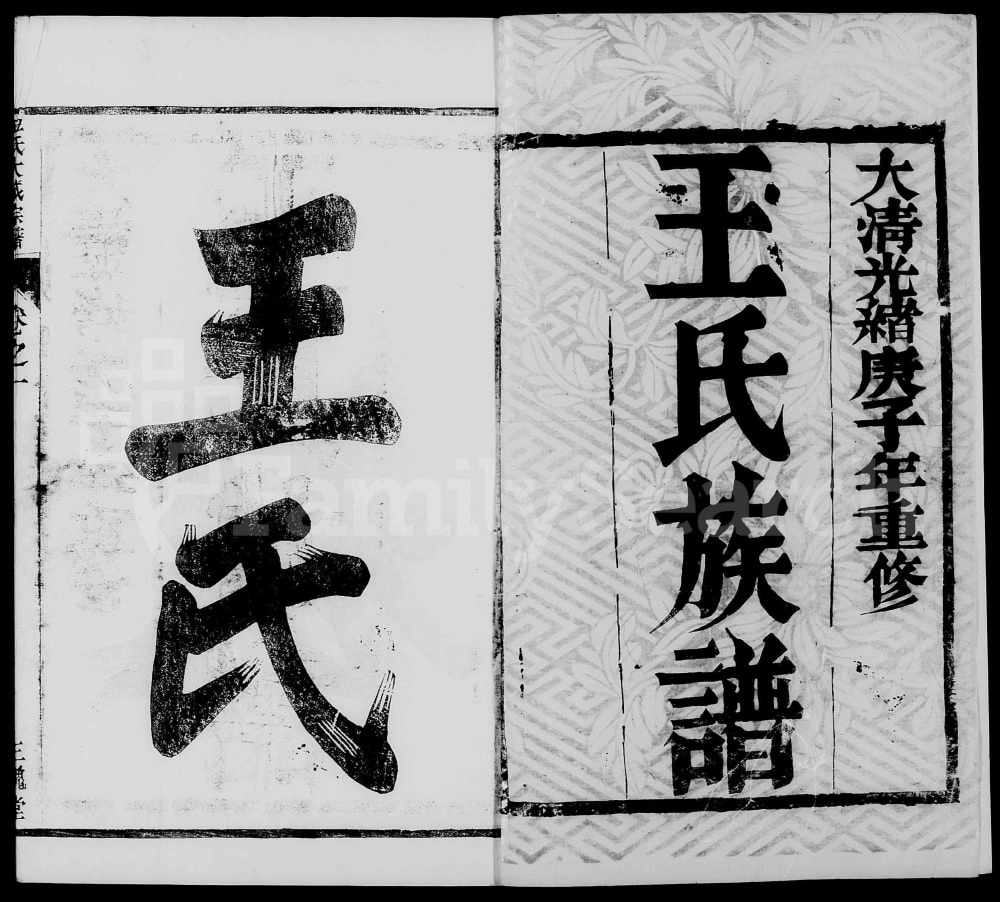 大清光緒庚子年重修
王氏族譜
王
氏
王氏大成宗譜
卷之一
三槐堂
FamilySearch